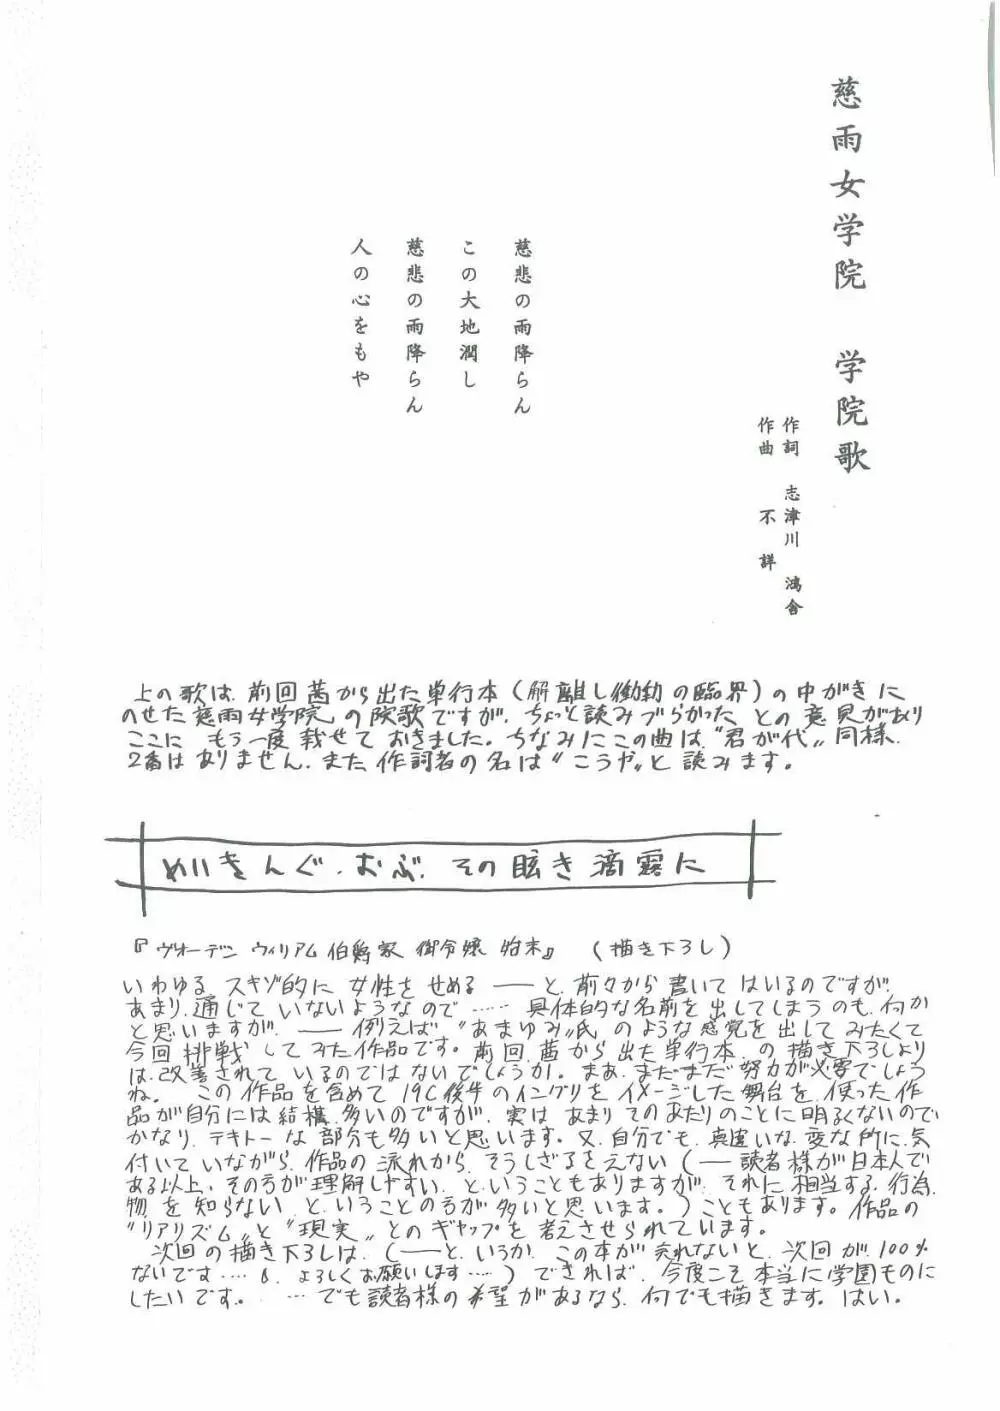 慈雨女学院 学院歌
作詞 志津川 鴻舎
作曲 不詳
慈悲の雨降らん
この大地潤し
慈悲の雨降らん
人の心をもや
上の歌は、前回茜から出た単行本(解離し働動の臨界)の中がきに
のせた慈雨女学院の院歌ですが、ちょっと読みづらかったとの意見があり
ここに もう一度載せておきました。ちなみにこの曲は、“君が代”同様、
2番はありません。また、作詞者の名は“こうや”と読みます。
めいきんぐ・おぶ、その眩き滴霧に
『ヴォーデンウィリアム伯爵家 御令嬢 始末』 (描き下ろし)
いわゆる、スキゾ的に女性をせめる——と、前々から書いてはいるのですが、
あまり、通じていないようなので…… 具体的な名前を出してしまうのも、何か
と思いますが、——例えば“あまゆみ”氏のような感覚を出してみたくて
今回挑戦してみた作品です。前回、茜から出た単行本、の描き下ろしより
は、改善されているのではないでしょうか。まあ、まだまだ努力が必要でしょう
ね。 この作品を含めて19C後半のイングリをイメージした舞台を、使った作
品が自分には結構、多いのですが、実は、あまりそのあたりのことに明るくないので
かなり、テキトーな部分も多いと思います。又、自分でも、真違いな、変な所に、気
付いていながら、作品の流れから、そうしざるをえない(——読者様が日本人で
ある以上、その方が理解しやすい、ということもありますが、それに相当する、行為、
物、を知らない、ということの方が多いと思います。)こともあります。作品の
“リアリズム”と“現実”とのギャップを考えさせられています。
次回の描き下ろしは、(——と、いうか、この本が売れないと、次回が、100%
ないです……。よろしくお願いします……)できれば、今度こそ本当に学園ものに
したいです。……でも読者様の希望があるなら、何でも描きます。はい。